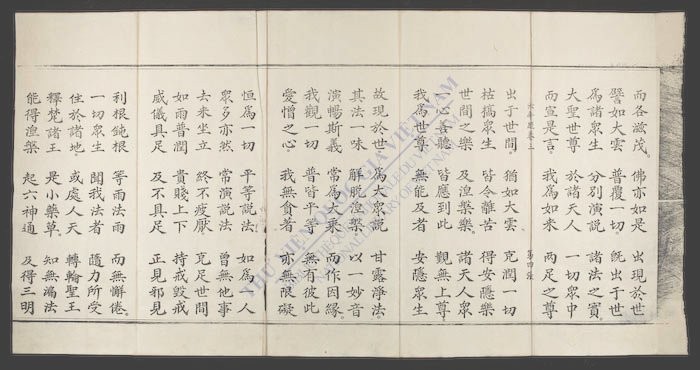 而各滋茂。 佛亦如是 出現於世
譬如大雲 普覆一切。 既出于世
為諸眾生 分別演說 諸法之實。
大聖世尊 於諸天人 一切眾中
而宣是言。 我為如來 兩足之尊
出于世間。 猶如大雲 充潤一切
枯槁眾生 皆令離苦 得安隱樂
世間之樂 及涅槃樂。 諸天人眾
一心善聽 皆應到此 觀無上尊。
我為世尊 無能及者 安隱眾生
故現於世 為大眾說 甘露淨法
其法一味 解脫涅槃。 以一妙音
演暢斯義 常為大乘 而作因緣。
我觀一切 普皆平等 無有彼此
愛憎之心。 我無貪著 亦無限礙
恒為一切 平等說法 如為一人
眾多亦然 常演說法 曾無他事
去來坐立 終不疲厭 充足世間
如雨普潤 貴賤上下 持戒毀戒
威儀具足 及不具足 正見邪見
利根鈍根 等雨法雨 而無懈倦。
一切眾生 聞我法者 隨力所受
住於諸地。 或處人天 轉輪聖王
釋梵諸王 是小藥草。 知無漏法
能得涅槃 起六神通 及得三明
THƯ VIỆN QUỐC GIA VIỆT NAM
BIBLIOTHÈQUE NATIONALE DU VIETNAM
NATIONAL LIBRARY OF VIETNAM